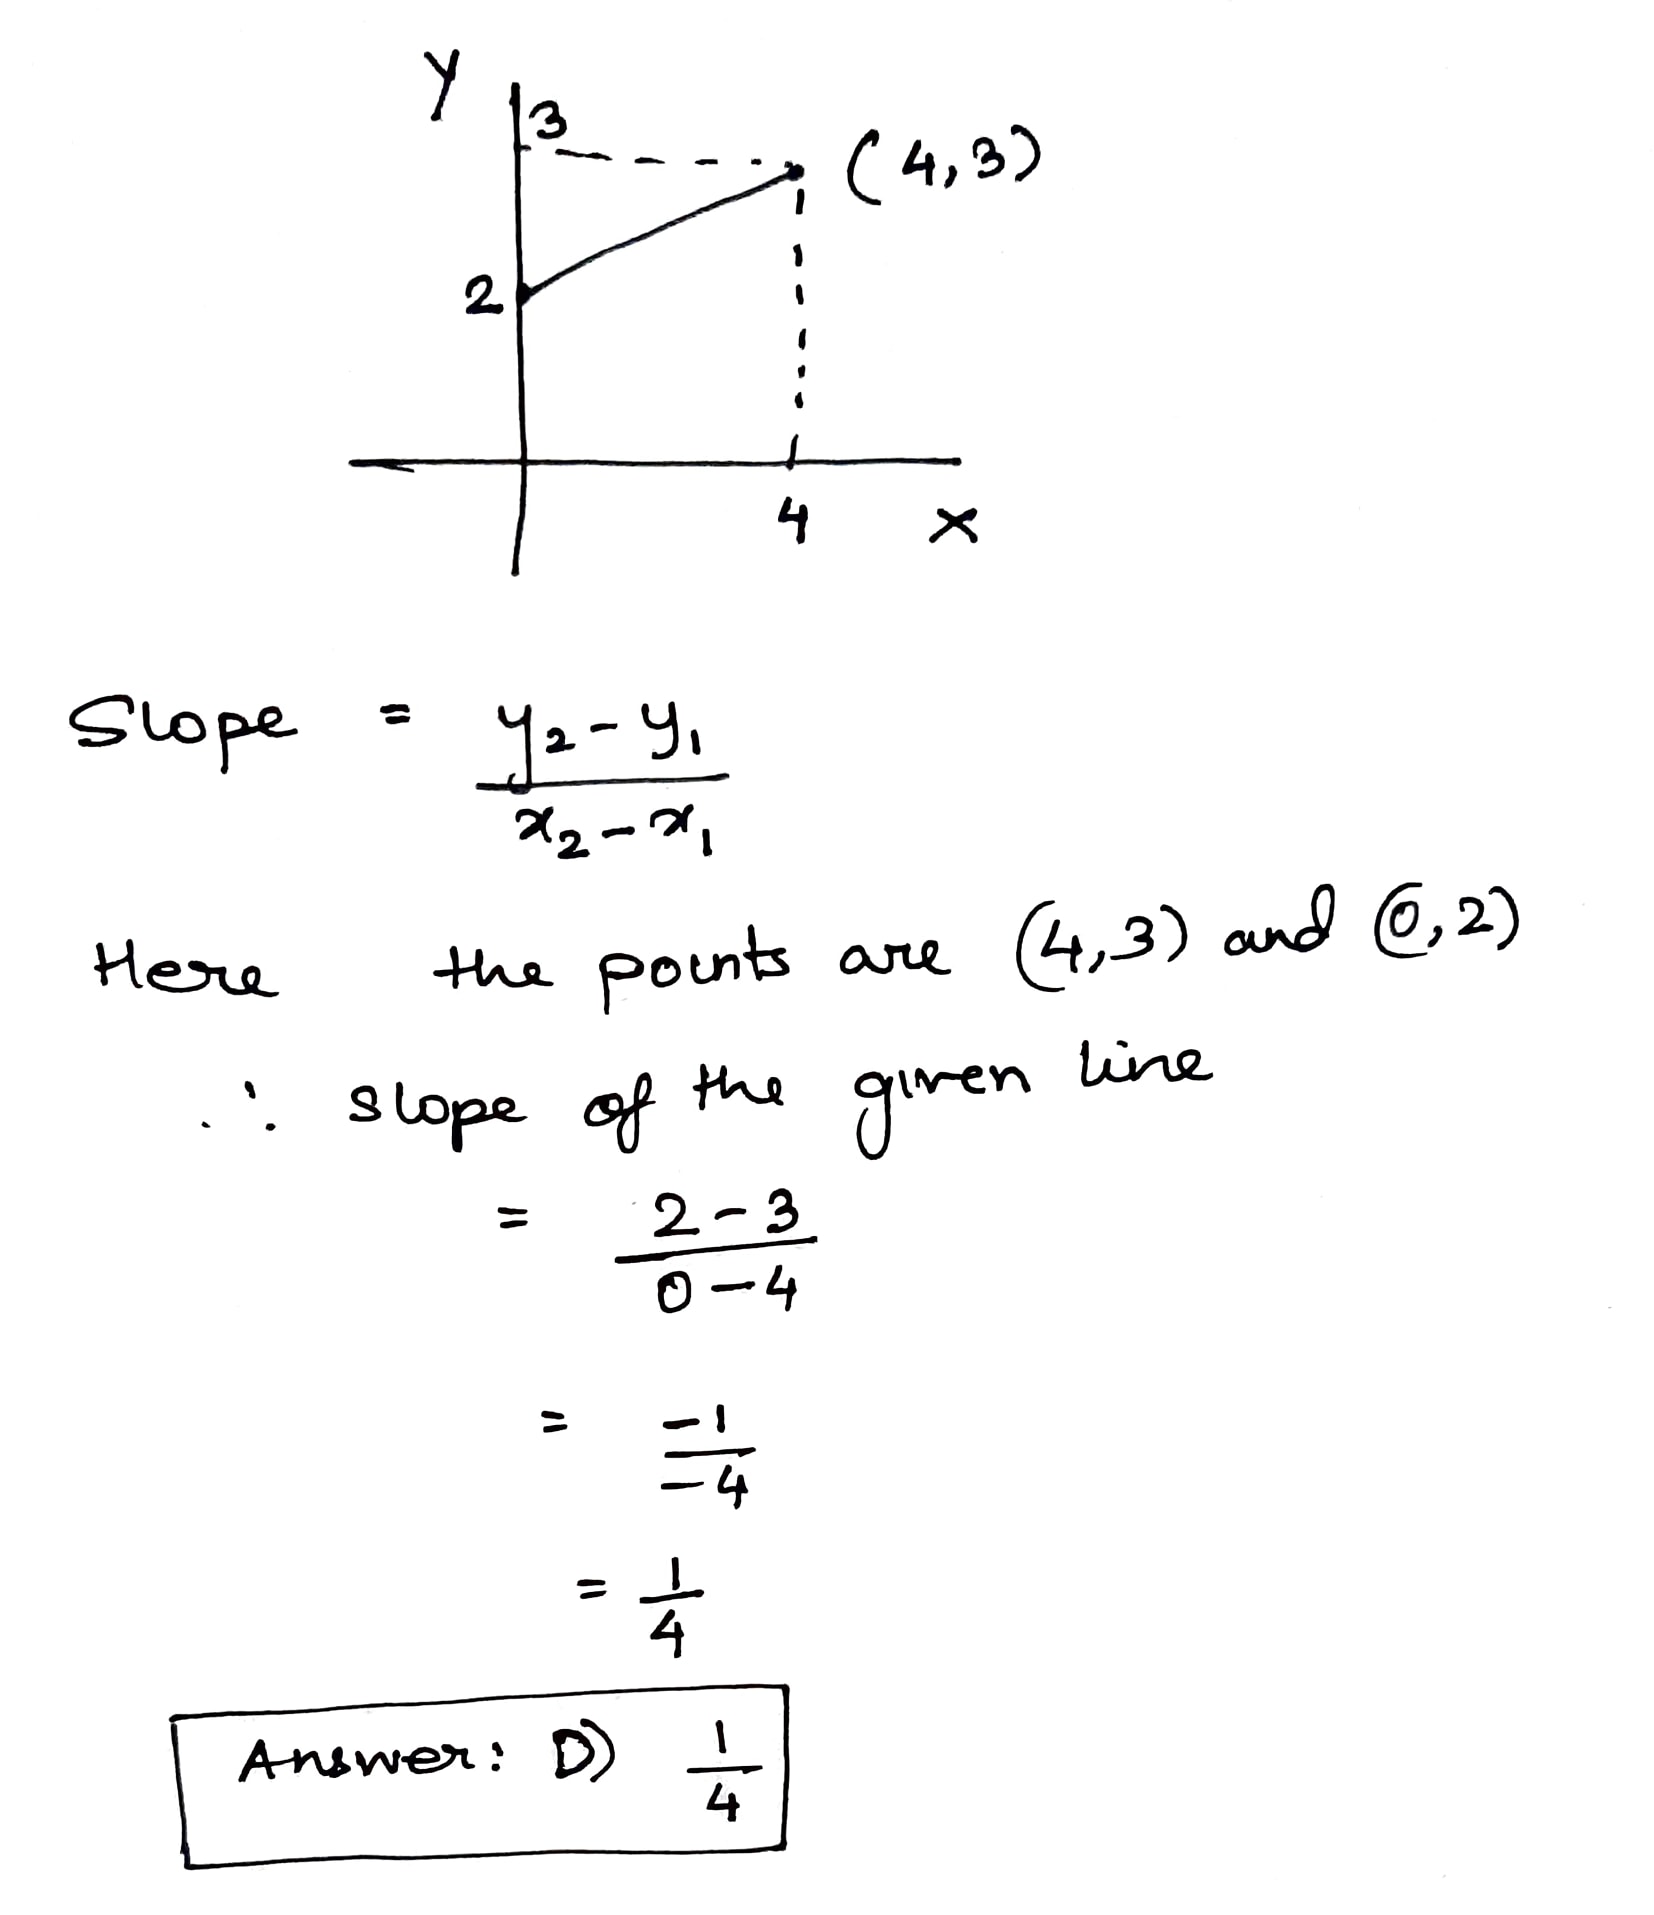 Y
3
(4,3)
2
4
X
Slope = y₂-y₁
x₂-x₁
Here the points are (4,3) and (0,2)
∴ slope of the given line
= 2-3
0-4
= -1
-4
= 1
4
Answer: D) 1
4